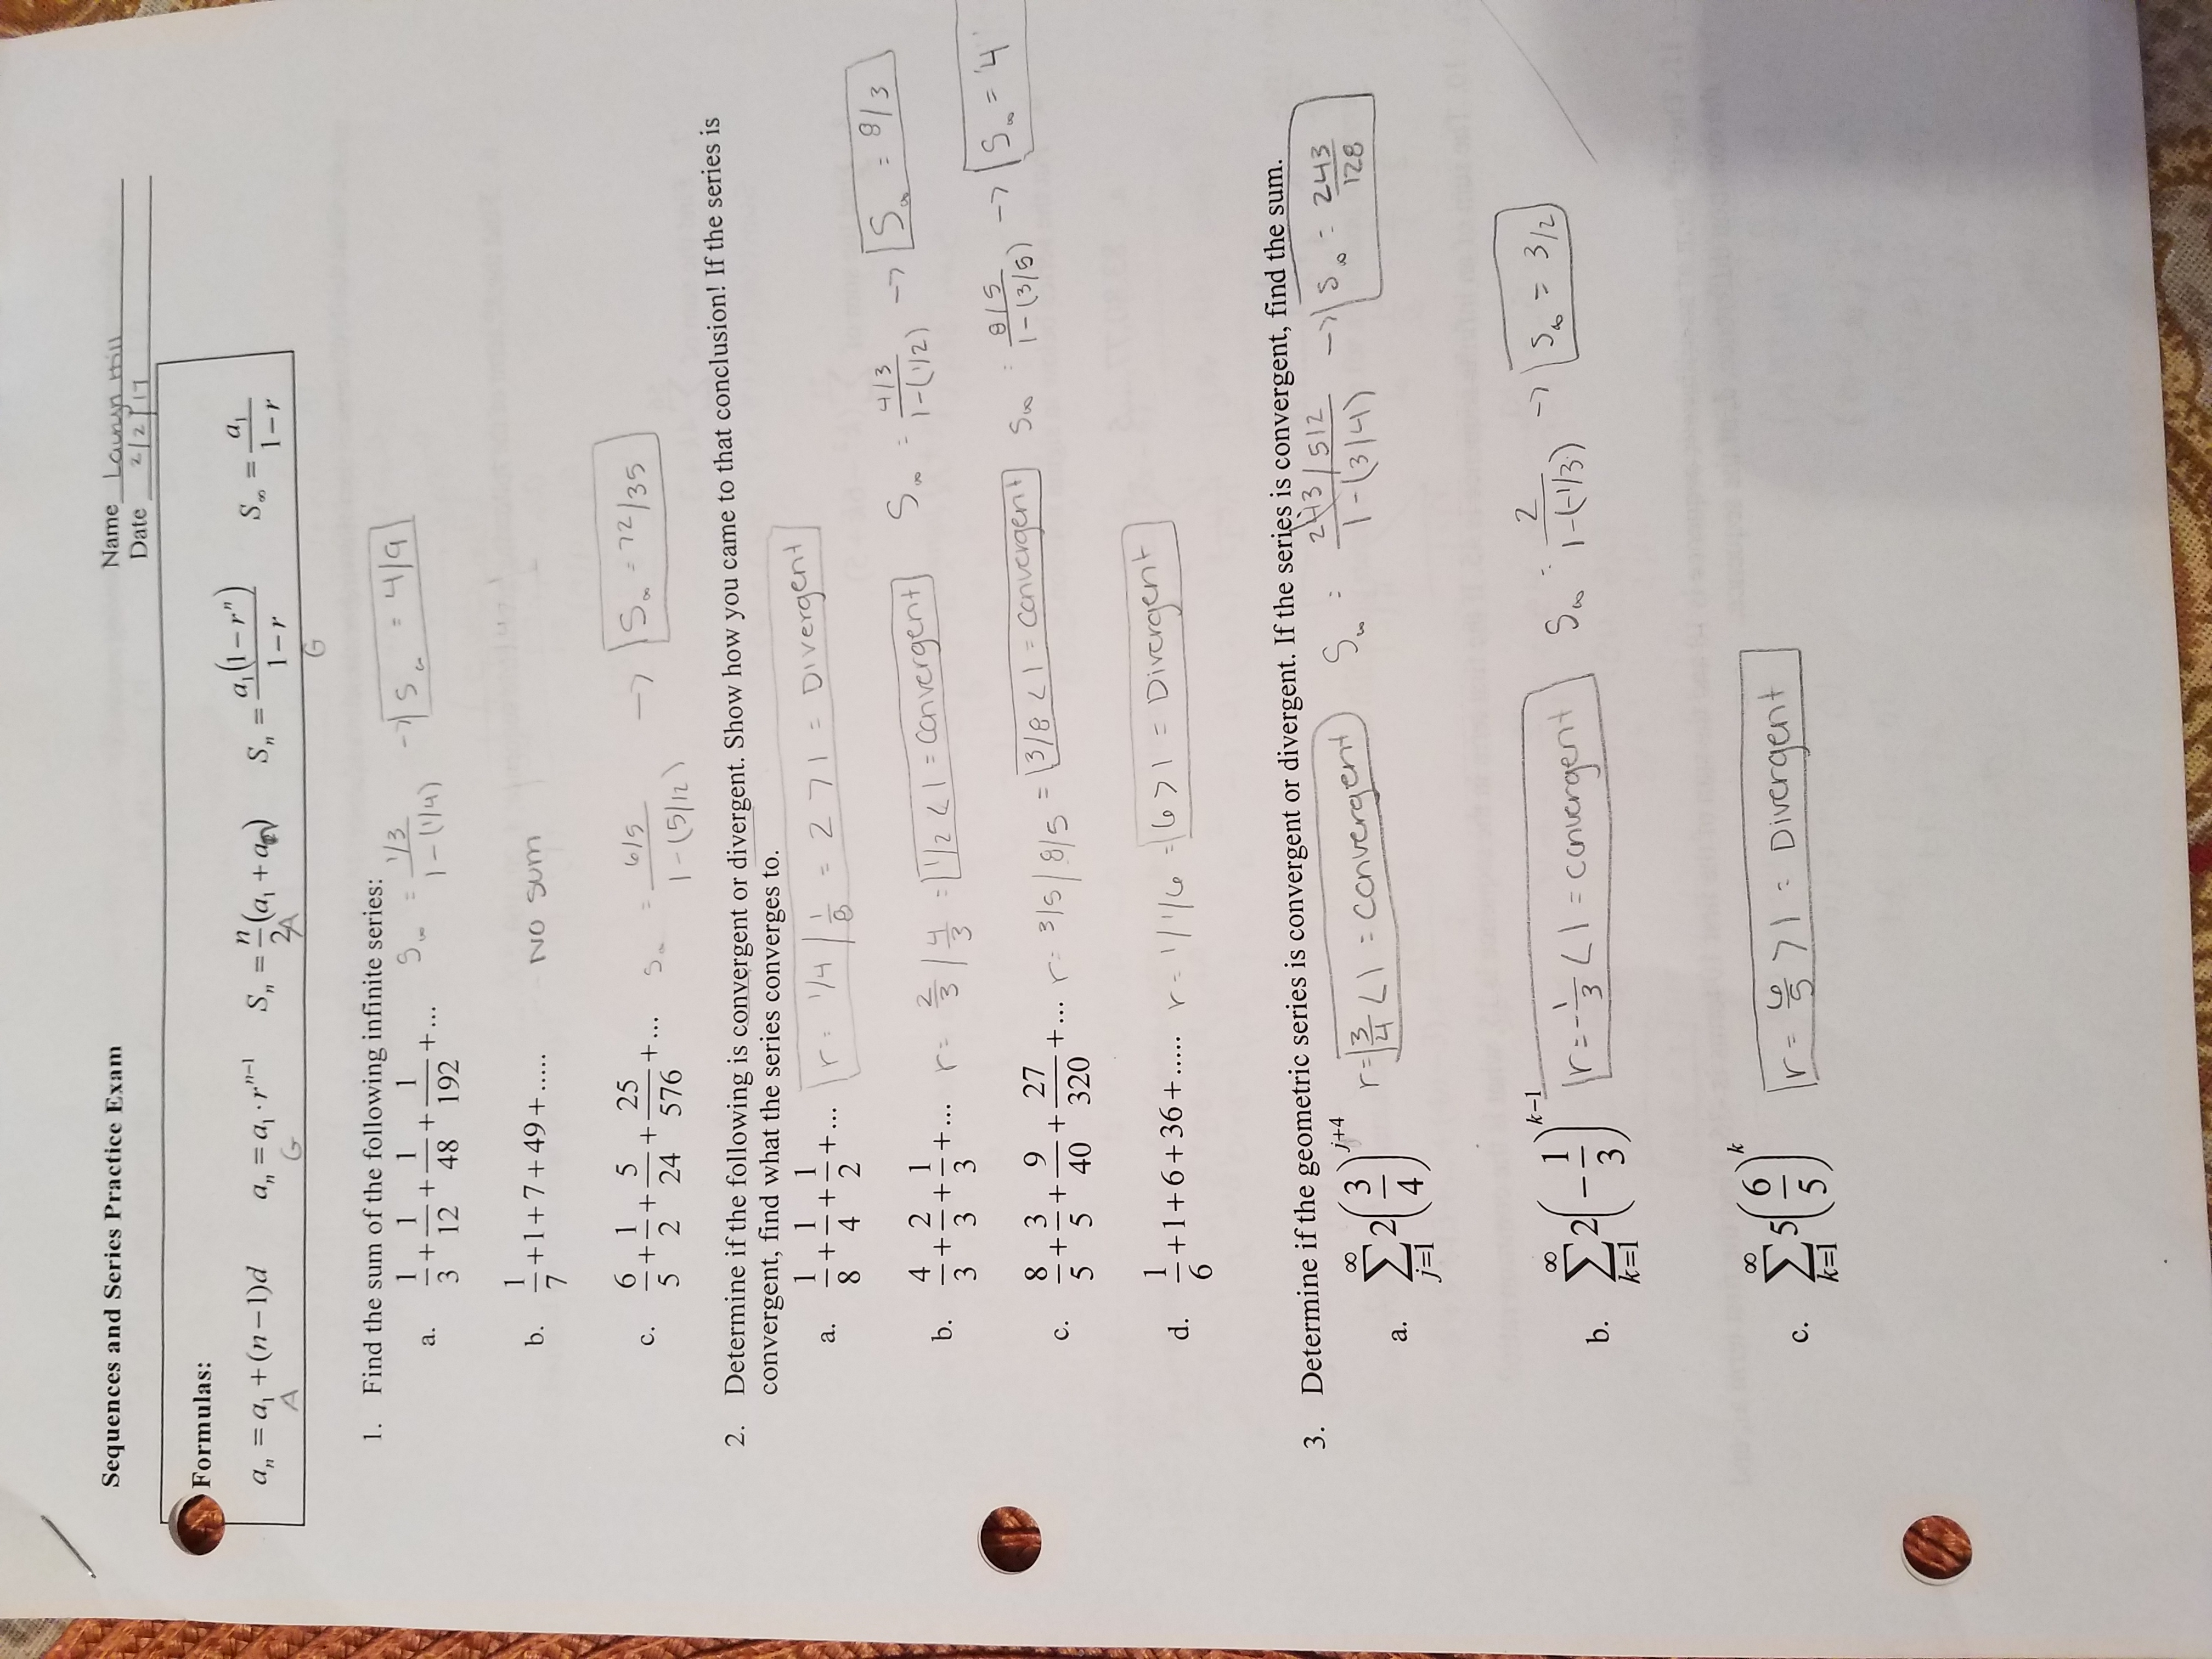 Sequences and Series Practice Exam
Name Lauryn Hill
Date 2/2/17
Formulas:
aₙ = a₁ + (n−1)d   aₙ = a₁ · rⁿ⁻¹   Sₙ = n/2(a₁ + aₙ)   Sₙ = a₁(1−rⁿ)/1−r   S∞ = a₁/1−r
A   G   A   G
1. Find the sum of the following infinite series:
a. 1/3 + 1/12 + 1/48 + 1/192 + ...   S∞ = 1/3 / 1−(1/4) → S∞ = 4/9
b. 1/7 + 1 + 7 + 49 + .....   NO sum
c. 6/5 + 1/2 + 5/24 + 25/576 + ...   S∞ = 6/5 / 1−(5/12) → S∞ = 72/35
2. Determine if the following is convergent or divergent. Show how you came to that conclusion! If the series is
convergent, find what the series converges to.
a. 1/8 + 1/4 + 1/2 + ...   r = 1/4 / 1/8 = 2 > 1 = Divergent
b. 4/3 + 2/3 + 1/3 + ...   r = 2/3 / 4/3 = 1/2 < 1 = convergent   S∞ = 4/3 / 1−(1/2) → S∞ = 8/3
c. 8/5 + 3/5 + 9/40 + 27/320 + ...   r = 3/5 / 8/5 = 3/8 < 1 = convergent   S∞ = 8/5 / 1−(3/5) → S∞ = 4
d. 1/6 + 1 + 6 + 36 + .....   r = 1/1/6 = 6 > 1 = Divergent
3. Determine if the geometric series is convergent or divergent. If the series is convergent, find the sum.
a. ∞ ∑ j=1 2(3/4)^j+4   r = 3/4 < 1 = convergent   S∞ = 243/512 / 1−(3/4) → S∞ = 243/128
b. ∞ ∑ k=1 2(−1/3)^k−1   r = −1/3 < 1 = convergent   S∞ = 2 / 1−(−1/3) → S∞ = 3/2
c. ∞ ∑ k=1 5(6/5)^k   r = 6/5 > 1 = Divergent